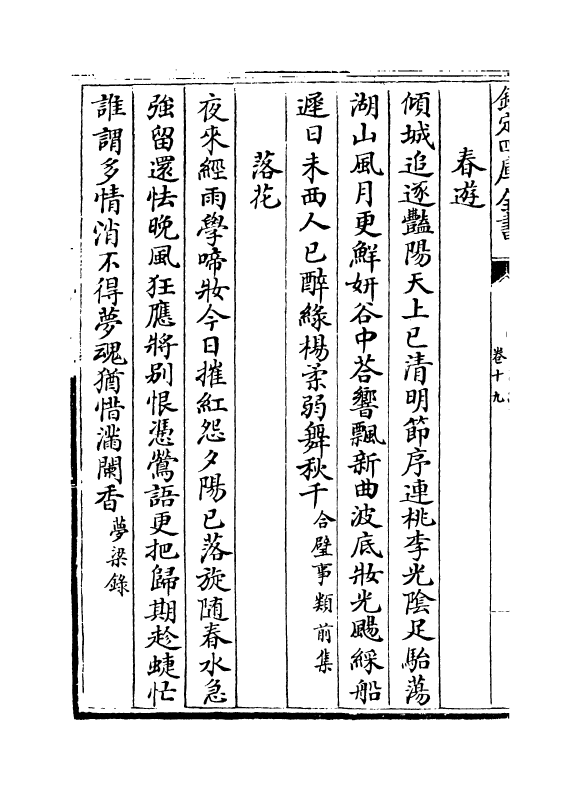 欽定四庫全書
卷十九
春遊
傾城追逐豔陽天上巳清明節序連桃李光陰足駘蕩
湖山風月更鮮妍谷中荅響飄新曲波底妝光颺綵船
遲日未西人已醉緑楊柔弱舞秋千合璧事類前集
落花
夜來經雨學啼妝今日摧紅怨夕陽已落旋随春水急
強留還怯晚風狂應將别恨憑鶯語更把歸期趁蜨忙
誰謂多情消不得夢魂猶惜滿闌香夢梁錄